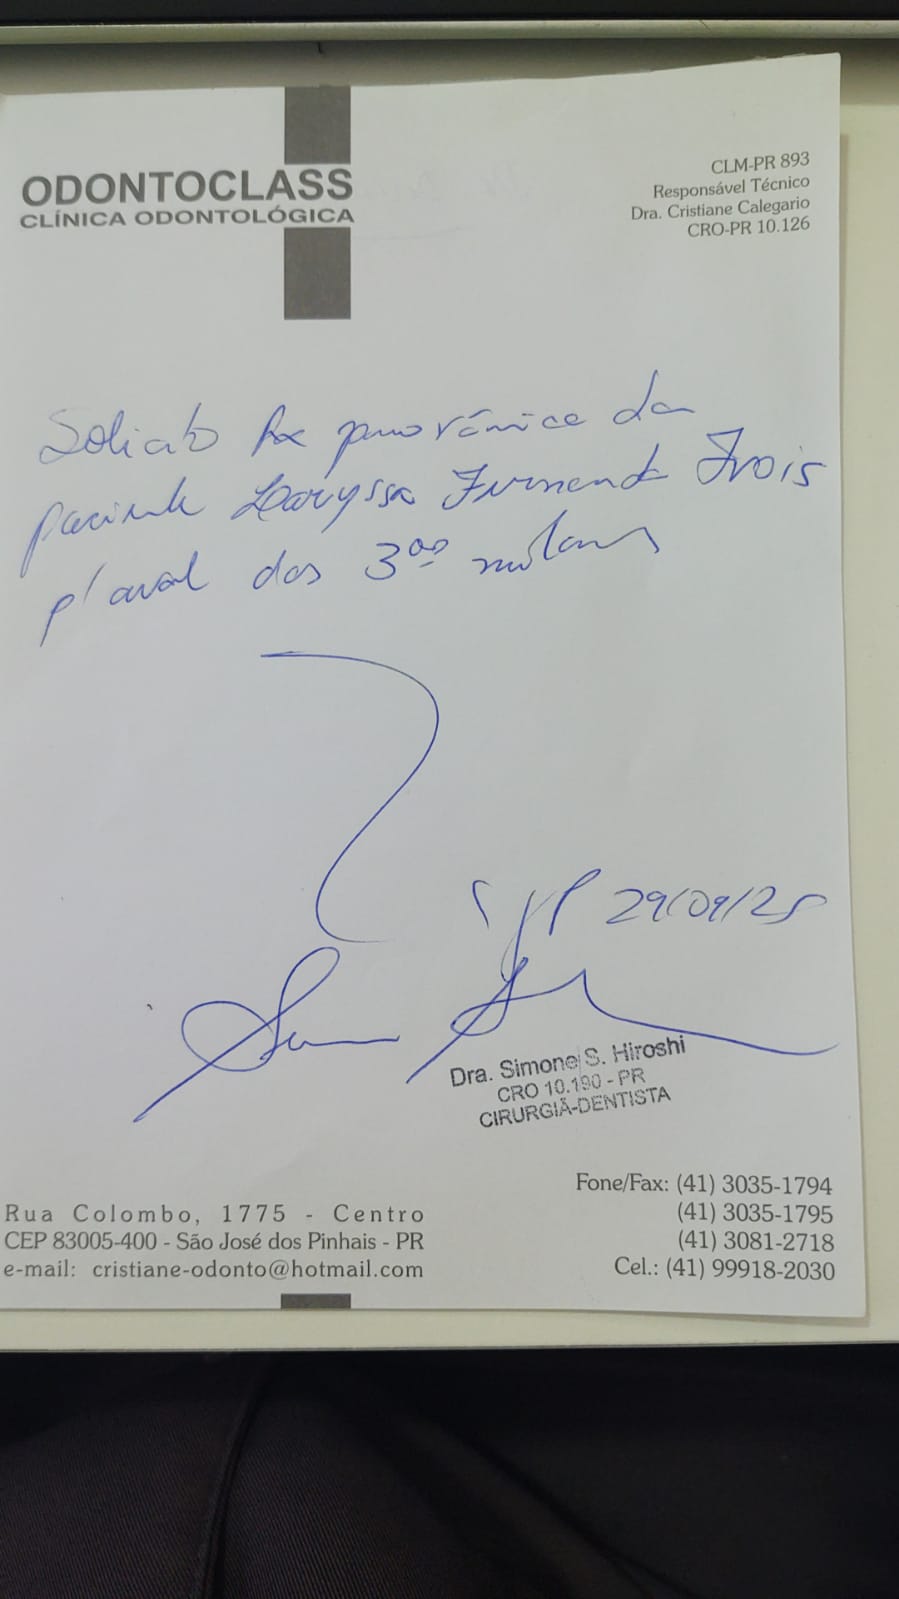 ODONTOCLASS
CLÍNICA ODONTOLÓGICA
CLM-PR 893
Responsável Técnico
Dra. Cristiane Calegario
CRO-PR 10.126
Solicito Rx panorâmica da
paciente Laryssa Fernanda Frois
p/ aval dos 3ºˢ molares
SJP 29/09/25
Dra. Simone S. Hiroshi
CRO 10.190 - PR
CIRURGIÃ-DENTISTA
Rua Colombo, 1775 - Centro
CEP 83005-400 - São José dos Pinhais - PR
e-mail: cristiane-odonto@hotmail.com
Fone/Fax: (41) 3035-1794
(41) 3035-1795
(41) 3081-2718
Cel.: (41) 99918-2030